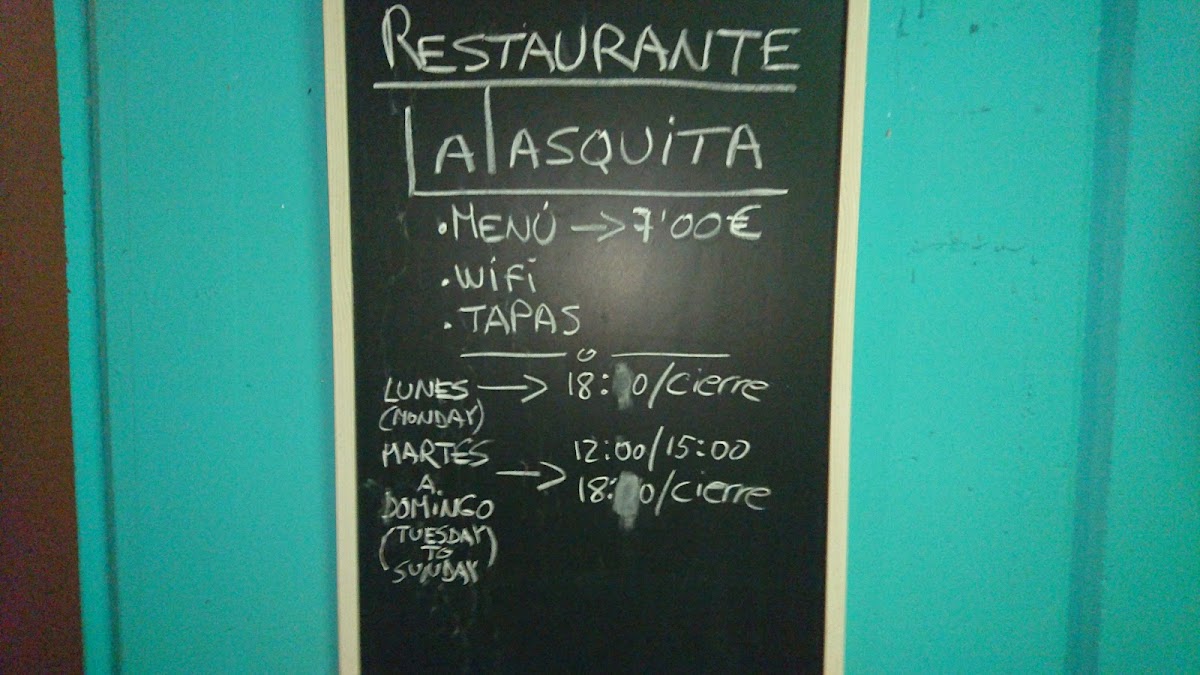 RESTAURANTE
LA TASQUITA
• MENÚ → 7'00€
• WiFi
• TAPAS
o
LUNES → 18: 0/cierre
(MONDAY)
MARTES
A.
DOMiNGO → 12:00/15:00
18: 0/cierre
(TUESDAY
TO
SUNDAY)